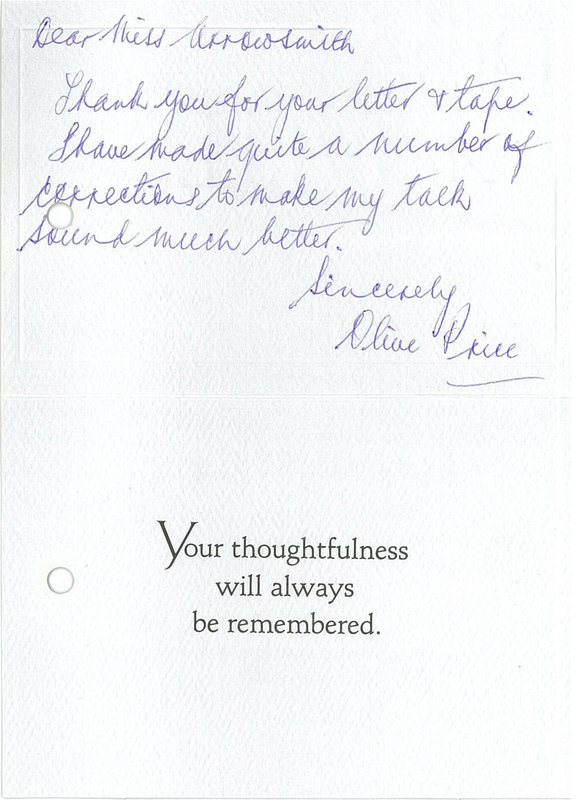 Dear Miss Arrowsmith
Thank you for your letter & tape.
I have made quite a number of
corrections to make my talk
sound much better.
Sincerely
Olive Price
Your thoughtfulness
will always
be remembered.